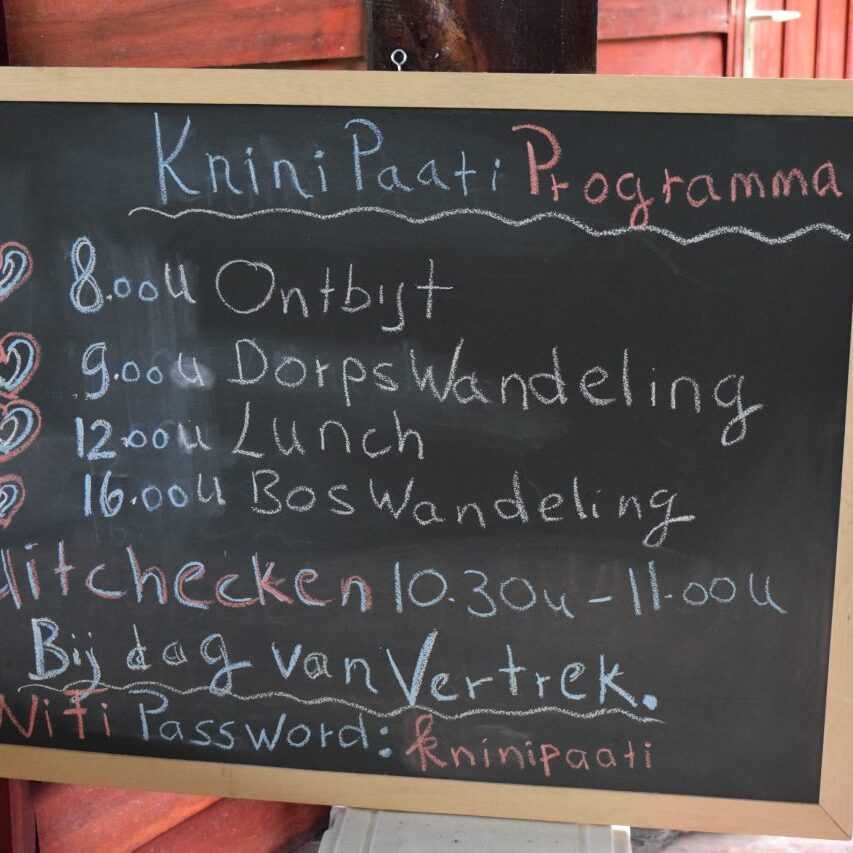 Knini Paati Programma
8.00u Ontbijt
9.00u DorpsWandeling
12.00u Lunch
16.00u BosWandeling
Uitchecken 10.30u - 11.00u
Bij dag van Vertrek.
WiFi Password: kninipaati